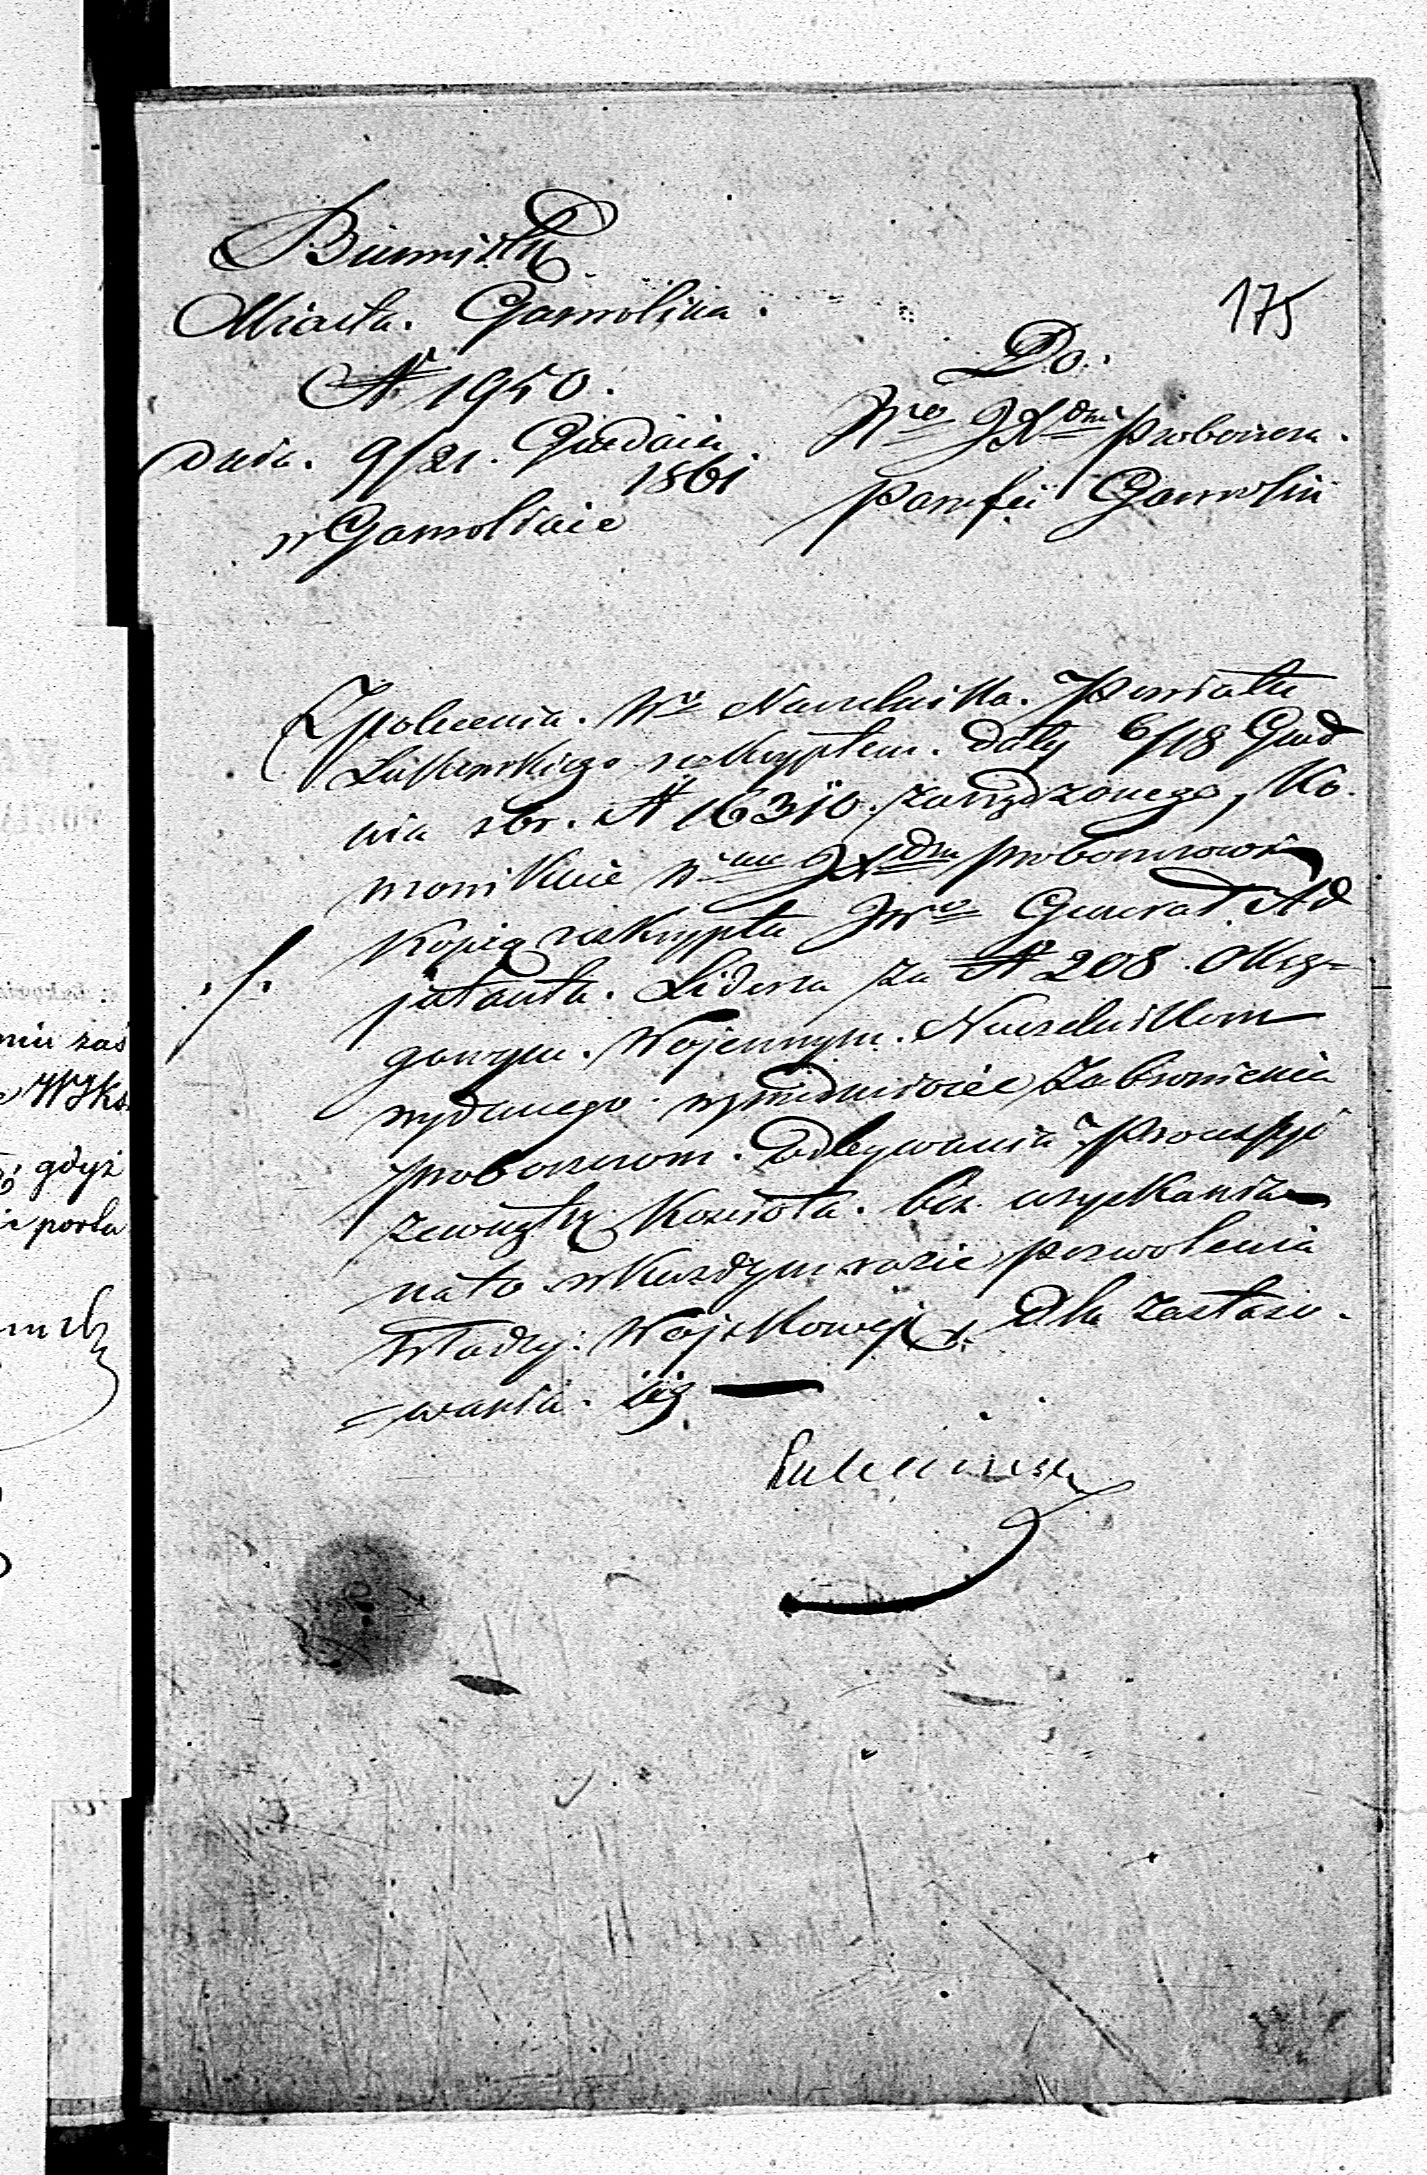 Burmistrz
Miasta Garwolina.
№ 1950.
Dnia 9/21 Grudnia
1861
w Garwolinie
175
Do
JWgo JXdza Proboszcza
Parafii Garwolin
Z polecenia Wgo Naczelnika Powiatu
Łukowskiego reskryptem daty 6/18 Grud
nia rbr. № 16310 zarządzonego, Ko-
munikuie Wmu JXdzu proboszczowi
./. Kopię reskryptu JWgo Generał Ad
jutanta Lidersa za № 208 Okrę=
gowym Wojennym Naczelnikom
wydanego względnie Zabronienia
proboszczom Odbywania Processyi
zewnątrz Kościoła bez uzyskania
na to w każdym razie pozwolenia
Władzy Wojskowej, dla zastoso-
=wania się
miu zaś
WJks
gdyż